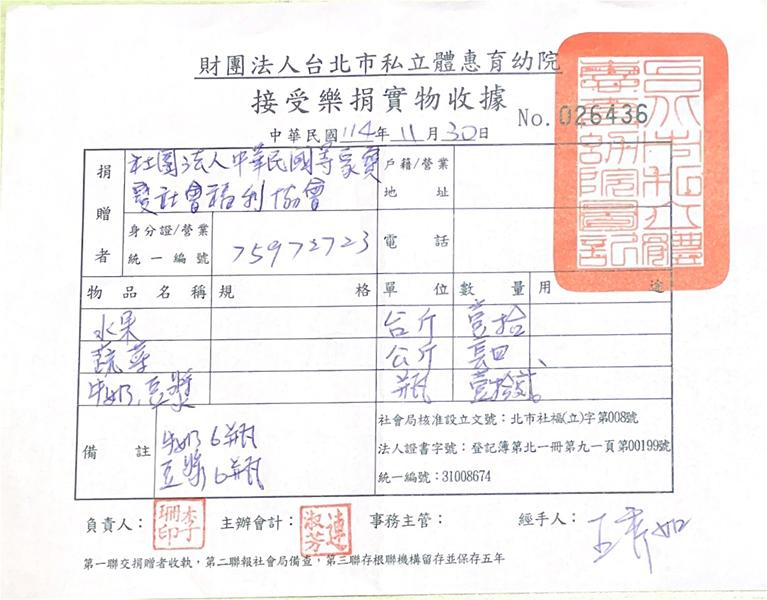 財團法人台北市私立體惠育幼院
接受樂捐實物收據
No. 026436
中華民國 114 年 11 月 30 日
捐贈者
社團法人中華民國等家寶寶社會福利協會
戶籍/營業地址
身分證/營業統一編號
75972723
電話
物品名稱 規格 單位 數量 用途
水果 台斤 壹拾
蔬菜 公斤
牛奶、豆漿 瓶 壹拾貳
備註
牛奶6瓶
豆漿6瓶
社會局核准設立文號:北市社福(立)字第008號
法人證書字號:登記簿第北一冊第九一頁第00199號
統一編號:31008674
負責人: 主辦會計: 連淑芳 事務主管: 經手人:
第一聯交捐贈者收執,第二聯報社會局備查,第三聯存根聯機構留存並保存五年